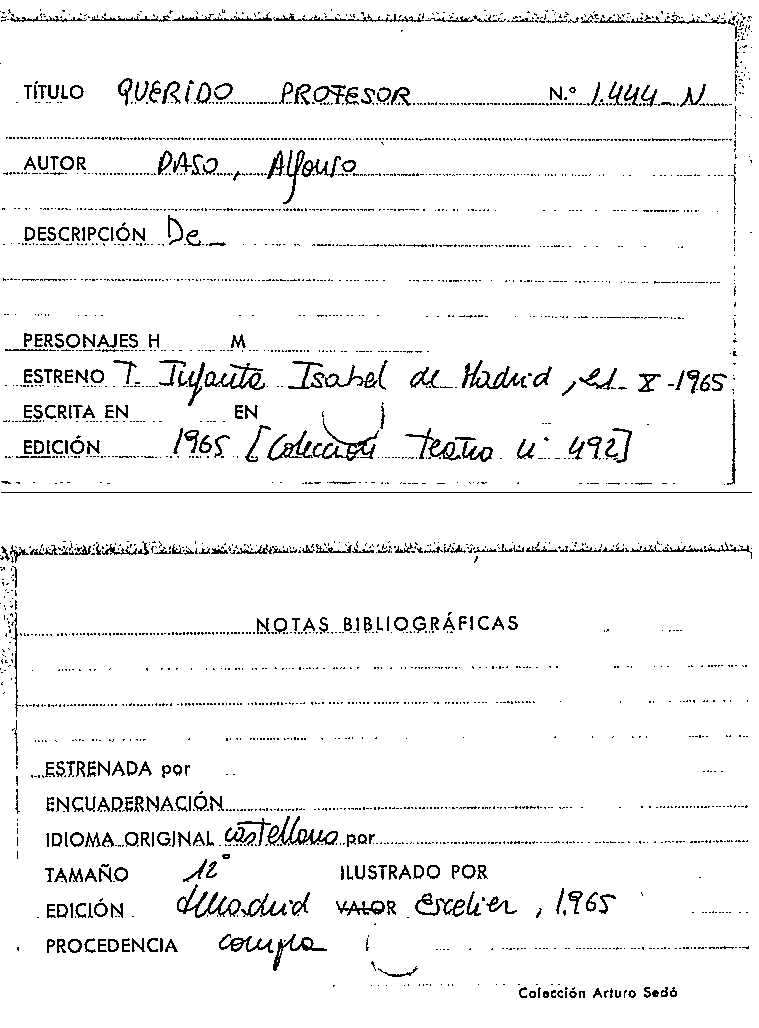 TÍTULO QUERIDO PROFESOR N.º 1.444-N
AUTOR PASO, Alfonso
DESCRIPCIÓN De
PERSONAJES H M
ESTRENO T. Infanta Isabel de Madrid, 21-X-1965
ESCRITA EN EN
EDICIÓN 1965 [Colección Teatro nº 492]
NOTAS BIBLIOGRÁFICAS
ESTRENADA por
ENCUADERNACIÓN
IDIOMA ORIGINAL castellano por
TAMAÑO 12º ILUSTRADO POR
EDICIÓN Madrid VALOR Escelier, 1965
PROCEDENCIA compra
Colección Arturo Sedó